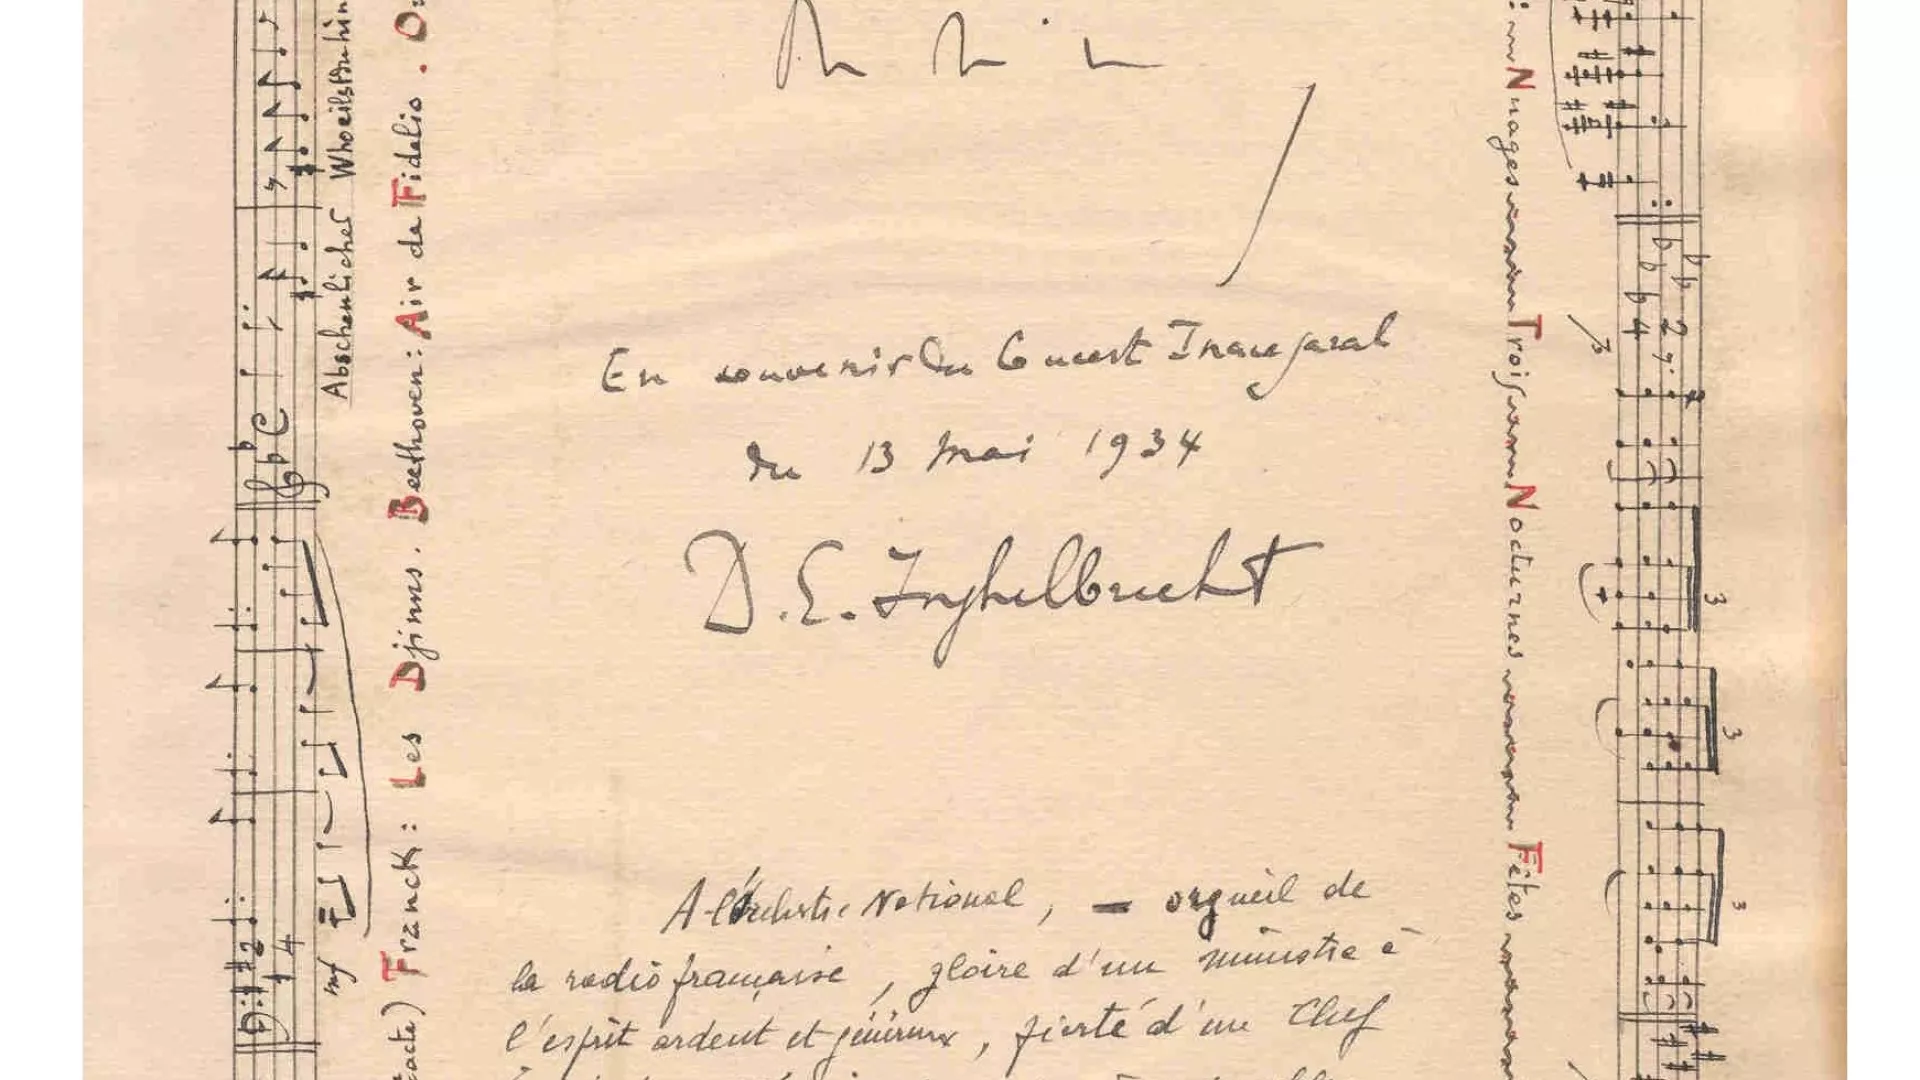 En souvenir du Concert Inaugural
du 13 mai 1934
D.E. Inghelbrecht
A l'Orchestre National, — orgueil de
la radio française, gloire d'un ministre à
l'esprit ardent et généreux, fierté d'un Chef
Abscheulicher Whoeilstduhin
acte) Franck: Les Djinns. Beethoven: Air de Fidelio. Ou
mf
: Nuages Trois Nocturnes Fêtes
3
3
3